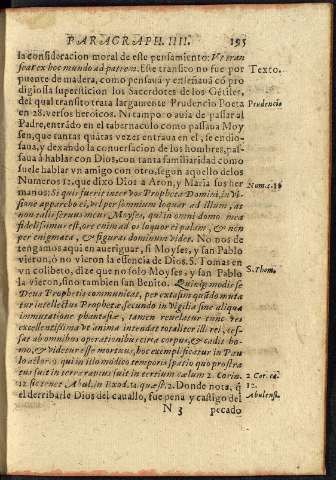 PARAGRAPH. IIII. 195
la consideracion moral de este pensamiento: Vt tran
seat ex hoc mundo ad patrem. Este transito no fue por
puente de madera, como pensaua y enseñaua có pro
digiosa supersticion los Sacerdotes de los Gétiles,
del qual transito trata largamente Prudencio Poeta
en 28. versos heroicos. Ni tampoco auia de passar al
Padre, entrádo en el tabernaculo como passaua Moy
sen, que tantas quátas vezes entraua en el, se endio-
saua, y dexando la conuersacion de los hombres, pas-
saua à hablar con Dios, con tanta familiaridad como
suele hablar vn amigo con otro, segun aquello de los
Numeros 12. que dixo Dios a Aron, y Maria sus her
manos: Si quis fuerit inter vos Propheta Domini, in vi-
sione apparebo ei, vel per somnium loquar ad illum, at
non talis seruus meus Moyses, qui in omni domo mea
fidelissimus est, ore enim ad os loquor ei palam, & non
per enigmata, & figuras dominum vides. No nos de-
tengamos aqui en aueriguar, si Moyses, y san Pablo
vieron, ò no vieron la essencia de Dios. S. Tomas en
vn colibeto, dize que no solo Moyses, y san Pablo
la vieron, sino tambien san Benito.
Deus Prophetis communicat, per extasim quãdo muta
tur intellectus Prophetæ, secundo in vigilia sine aliqua
immutatione phantasiæ, tamen reuelatur tunc res
excellentissima vt anima intendat totaliter illi rei, ces-
sat ab omnibus operationibus circa corpus, & cadit ho-
mo, & videtur esse mortuus, hoc exemplificatur in Pau
lo actor. 9. qui in illo modico temporis spatio quo prostra
tus fuit in terra raptus fuit in tertium cælum 2. Corin.
12. sic tenet Abul. in Exod. 12. quæst. 2. Donde nota, q̃
el derribarle Dios del cauallo, fue pena y castigo del
N 3 pecado
Texto.
Prudencio
Num. c. 12
S. Thom.
2 Cor. ca.
12.
Abulens.